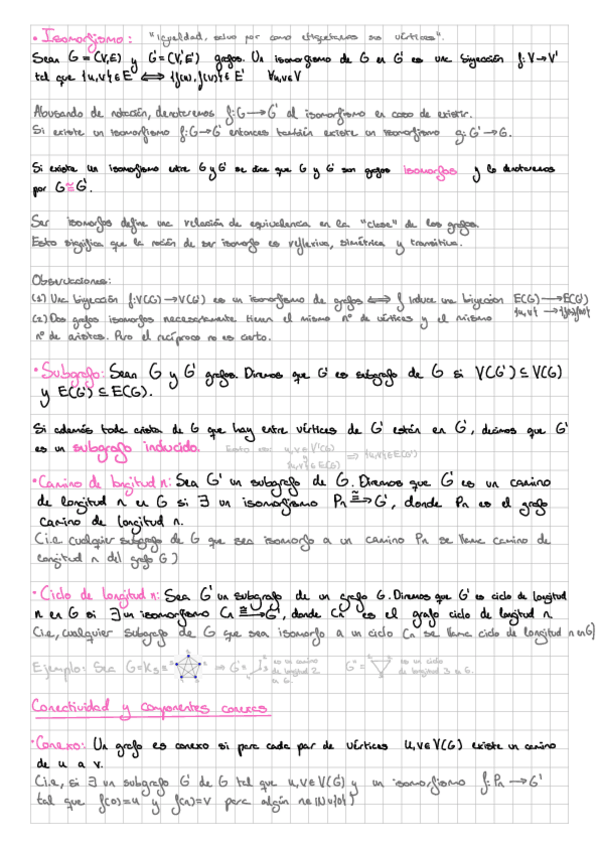 • Isomorfismo: "igualdad, salvo por como etiquetamos sus vértices".
Sean G = (V,E) y G' = (V',E') grafos. Un isomorfismo de G en G' es una biyección f: V → V'
tal que {u,v} ∈ E ⟺ {f(u), f(v)} ∈ E' ∀u,v ∈ V
Abusando de notación, denotaremos f: G → G' al isomorfismo en caso de existir.
Si existe un isomorfismo f: G → G' entonces también existe un isomorfismo g: G' → G.
Si existe un isomorfismo entre G y G' se dice que G y G' son grafos isomorfos y lo denotaremos
por G ≅ G'.
Ser isomorfos define una relación de equivalencia en la "clase" de los grafos.
Esto significa que la noción de ser isomorfo es reflexiva, simétrica y transitiva.
Observaciones:
(1) Una biyección f: V(G) → V(G') es un isomorfismo de grafos ⟺ f induce una biyección E(G) → E(G')
{u,v} → {f(u)f(v)}
(2) Dos grafos isomorfos necesariamente tienen el mismo nº de vértices y el mismo
nº de aristas. Pero el recíproco no es cierto.
• Subgrafo: Sean G y G' grafos. Diremos que G' es subgrafo de G si V(G') ⊆ V(G)
y E(G') ⊆ E(G).
Si además toda arista de G que hay entre vértices de G' están en G', decimos que G'
es un subgrafo inducido. Esto es: u,v ∈ V(G') y {u,v} ∈ E(G) ⇒ {u,v} ∈ E(G')
• Camino de longitud n: Sea G' un subgrafo de G. Diremos que G' es un camino
de longitud n en G si ∃ un isomorfismo Pn ≅→ G', donde Pn es el grafo
camino de longitud n.
(i.e cualquier subgrafo de G que sea isomorfo a un camino Pn se llama camino de
longitud n del grafo G)
• Ciclo de longitud n: Sea G' un subgrafo de un grafo G. Diremos que G' es ciclo de longitud
n en G si ∃ un isomorfismo Cn ≅→ G', donde Cn es el grafo ciclo de longitud n.
(i.e, cualquier subgrafo de G que sea isomorfo a un ciclo Cn se llama ciclo de longitud n en G)
Ejemplo: Sea G = K5 = ⇒ G' = es un camino de longitud 2 en G. G'' = es un ciclo de longitud 3 en G.
Conectividad y componentes conexas
• Conexo: Un grafo es conexo si para cada par de vértices u,v ∈ V(G) existe un camino
de u a v.
(i.e, si ∃ un subgrafo G' de G tal que u,v ∈ V(G') y un isomorfismo f: Pn → G'
tal que f(0)=u y f(n)=v para algún n ∈ ℕ∪{0})